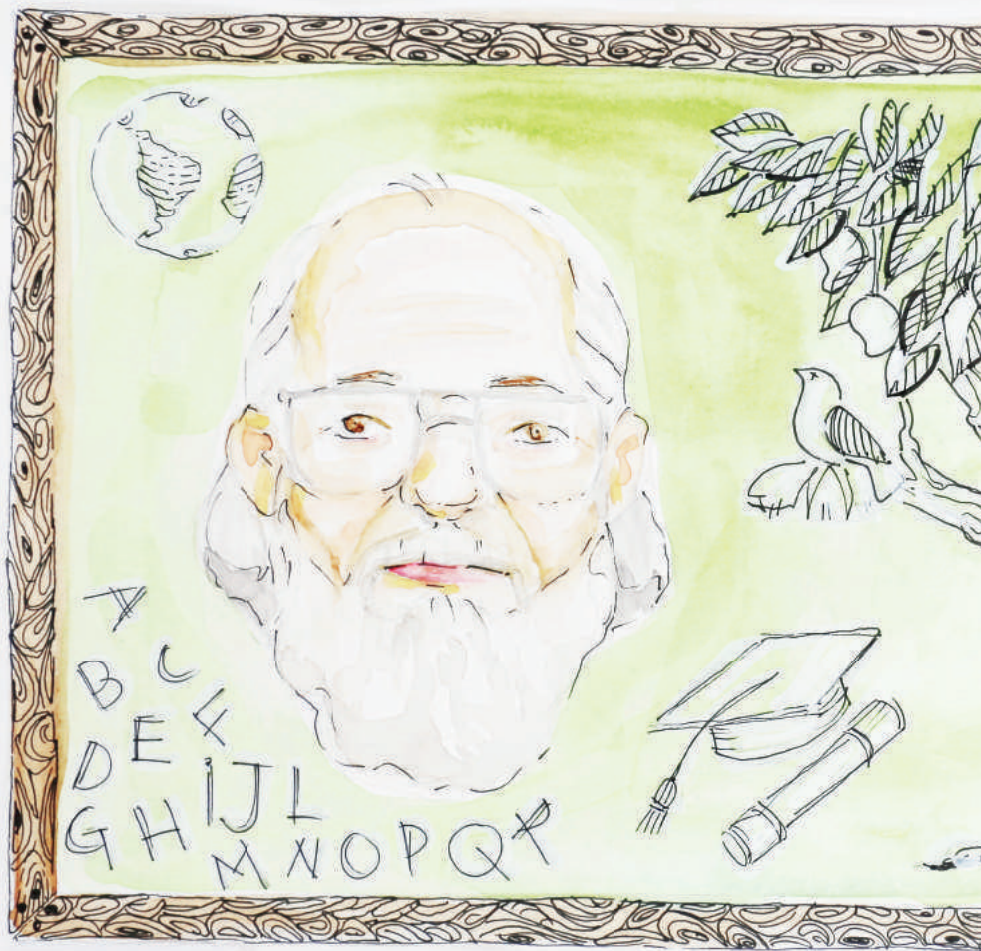 A
B C
D E F
G H I J L
M N O P Q R